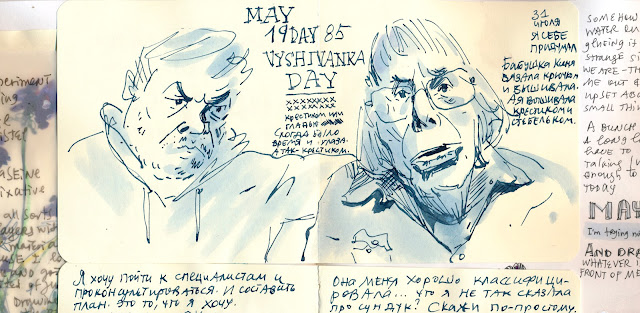 MAY
19 DAY 85
VYSHIVANKA
DAY
XXXXXXXX
XXXXXXXX
КРЕСТИКОМ ИЛИ
ГЛАДЬЮ
КОГДА БЫЛО
ВРЕМЯ И ГЛАЗА.
А ТАК - КРЕСТИКОМ.
31
ИЮЛЯ
Я СЕБЕ
ПРИДУМАЛ
БАБУШКА
ВЯЗАЛА КРЮЧКОМ
И ВЫШИВАЛА.
А Я ВЫШИВАЛА
КРЕСТИКОМ И
СТЕБЕЛЬКОМ.
Я ХОЧУ ПОЙТИ К СПЕЦИАЛИСТАМ И
ПРОКОНСУЛЬТИРОВАТЬСЯ. И СОСТАВИТЬ
ПЛАН. ЭТО ТО, ЧТО Я ХОЧУ.
ОНА МЕНЯ ХОРОШО КЛАССИФИЦИ-
РОВАЛА... ЧТО Я НЕ ТАК СКАЗАЛА
ПРО СУНДУК? СКАЖИ ПО-ПРОСТОМУ.
SOMEHOW
WATER
GLUEING IT
STRANGE
WE ARE - TH
ME OUT
UPSET
SMALL THIN
A BUNCH
A LONG
HAVE TO
TALKING
ENOUGH TO
TODAY
MAY
I'm trying
AND DRA
WHATEVER I
FRONT OF ME